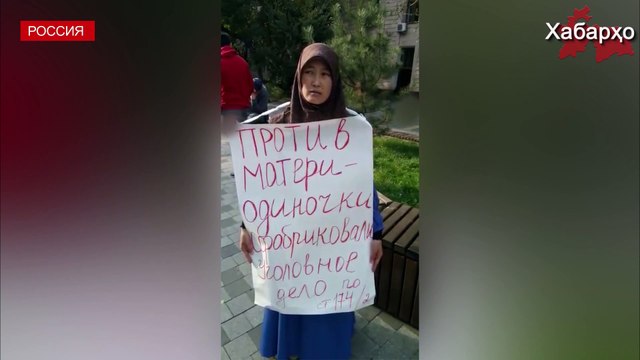 РОССИЯ
Хабарҳо
ПРОТИВ
матери-
одиночки
сфабриковали
уголовное
дело по
ст 174/2